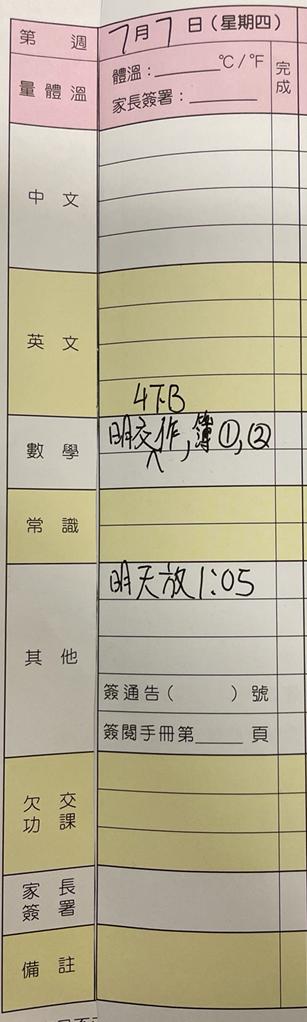 第 週 7月7日(星期四)
量體溫 體溫:______°C/°F 完成
家長簽署:______
中文
英文
4下B
數學 明交作,簿①,②
常識
其他 明天放1:05
簽通告( )號
簽閱手冊第____頁
欠交功課
家長簽署
備註